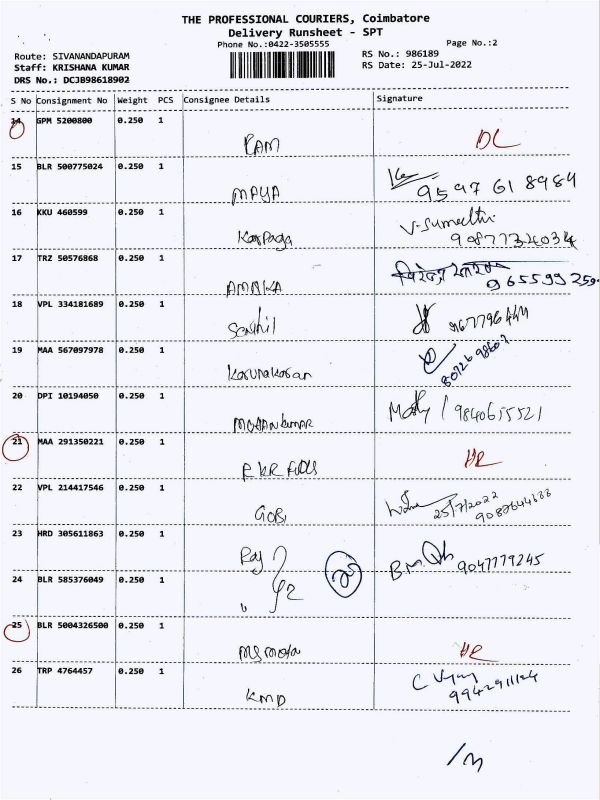 THE PROFESSIONAL COURIERS, Coimbatore
Delivery Runsheet - SPT
Phone No.:0422-3505555
Page No.:2
Route: SIVANANDAPURAM
Staff: KRISHANA KUMAR
DRS No.: DCJB98618902
RS No.: 986189
RS Date: 25-Jul-2022
S No Consignment No Weight PCS Consignee Details Signature
14 GPM 5200800 0.250 1 RAM DL
15 BLR 500775024 0.250 1 MAYA 9597618984
16 KKU 460599 0.250 1 Karpaga V-Sumathi 9087734034
17 TRZ 50576868 0.250 1 AMBIKA 965599259
18 VPL 334181689 0.250 1 Senthil
19 MAA 567097978 0.250 1 Karunakaran
20 DPI 10194050 0.250 1 MOHANkumar 9840615521
21 MAA 291350221 0.250 1 RKR HR
22 VPL 214417546 0.250 1 GOBI 25/7/2022
23 HRD 305611863 0.250 1 Raj 9047779245
24 BLR 585376049 0.250 1 "
25 BLR 5004326500 0.250 1 HR
26 TRP 4764457 0.250 1 KMD